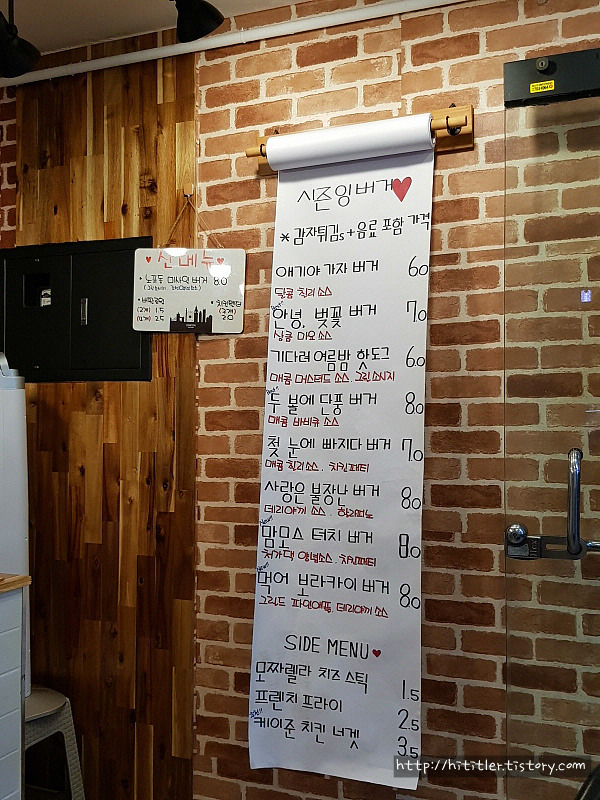 시즌잉버거♥
*감자튀김s+음료 포함 가격
애기야 가자 버거 6.0
달콤 칠리소스
안녕, 벚꽃 버거 7.0
상큼 마요소스
기다려 여름밤 핫도그 6.0
매콤 머스터드 소스. 그릴소시지
두 볼에 단풍 버거 8.0
매콤 바비큐 소스
첫 눈에 빠지다 버거 7.0
매콤 칠리소스. 치킨패티
사랑은 불장난 버거 8.0
데리야끼 소스. 할라피뇨
New!!
맘모스 터치 버거 8.0
처가댁 양념소스. 치킨패티
New!!
먹어 보라카이 버거 8.0
그릴드 파인애플, 데리야끼 소스
SIDE MENU♥
모짜렐라 치즈 스틱 1.5
프렌치 프라이 2.5
케이준 치킨 너겟 3.5
♥신메뉴♥
8.0
(2개) 1.5
(4개) 2.5
http://hititler.tistory.com